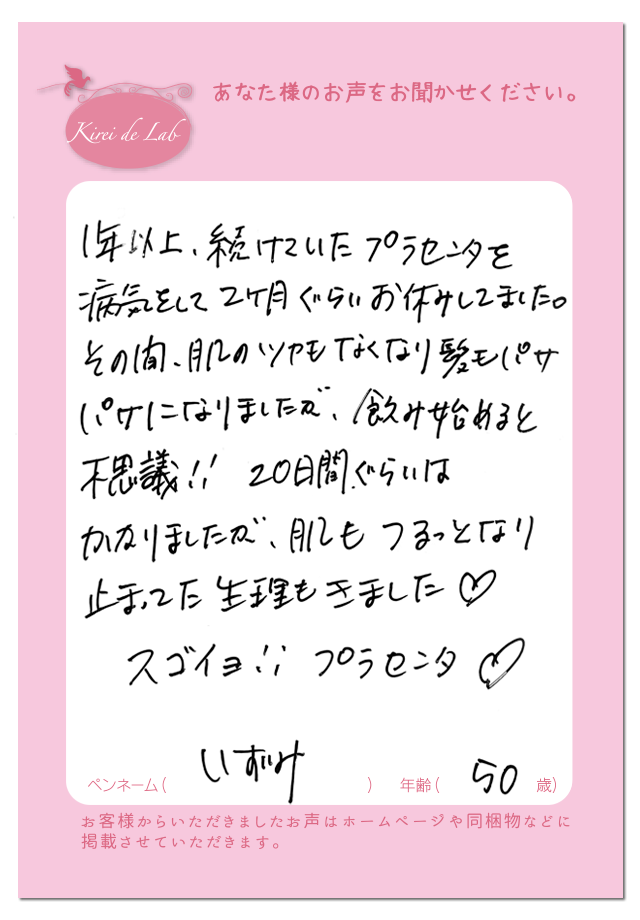 あなた様のお声をお聞かせください。
Kirei de Lab
1年以上、続けていたプラセンタを
病気をして2ケ月ぐらいお休みしてました。
その間、肌のツヤもなくなり髪もパサ
パサになりましたが、飲み始めると
不思議!! 20日間ぐらいは
かかりましたが、肌もつるっとなり
止まってた生理もきました♡
スゴイヨ!! プラセンタ♡
ペンネーム( いずみ ) 年齢( 50 歳)
お客様からいただきましたお声はホームページや同梱物などに
掲載させていただきます。